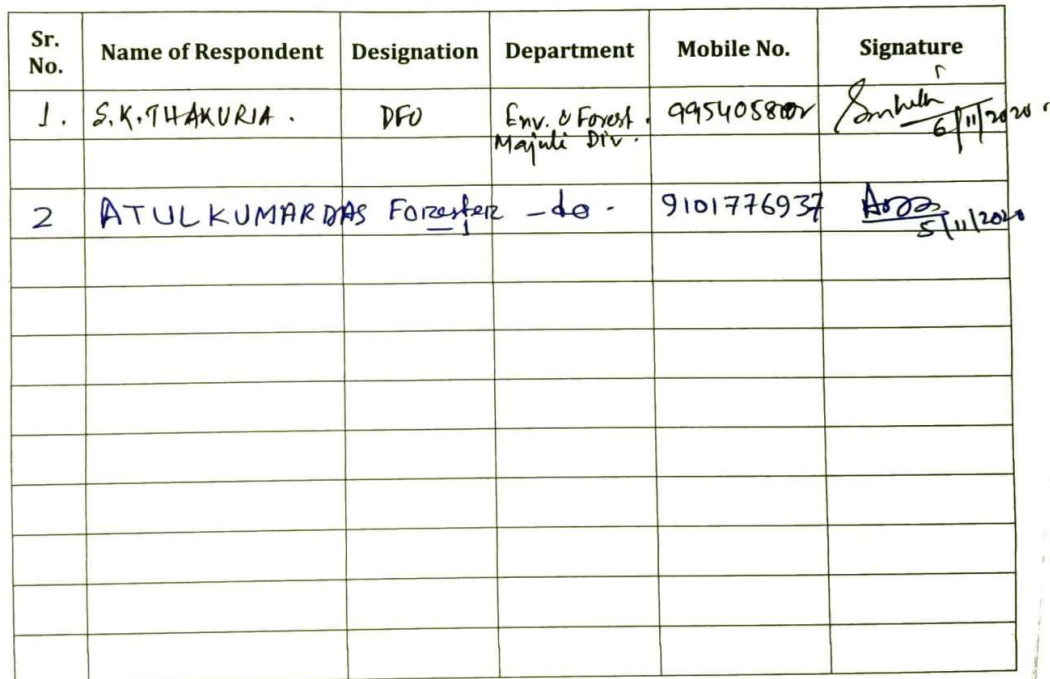 Sr. No. Name of Respondent Designation Department Mobile No. Signature
1. S.K. THAKURIA. DFO Env. & Forest. 6/11/2020
Majuli Div.
2 ATUL KUMAR DAS Forester -do- 9101776937 5/11/2020
-1